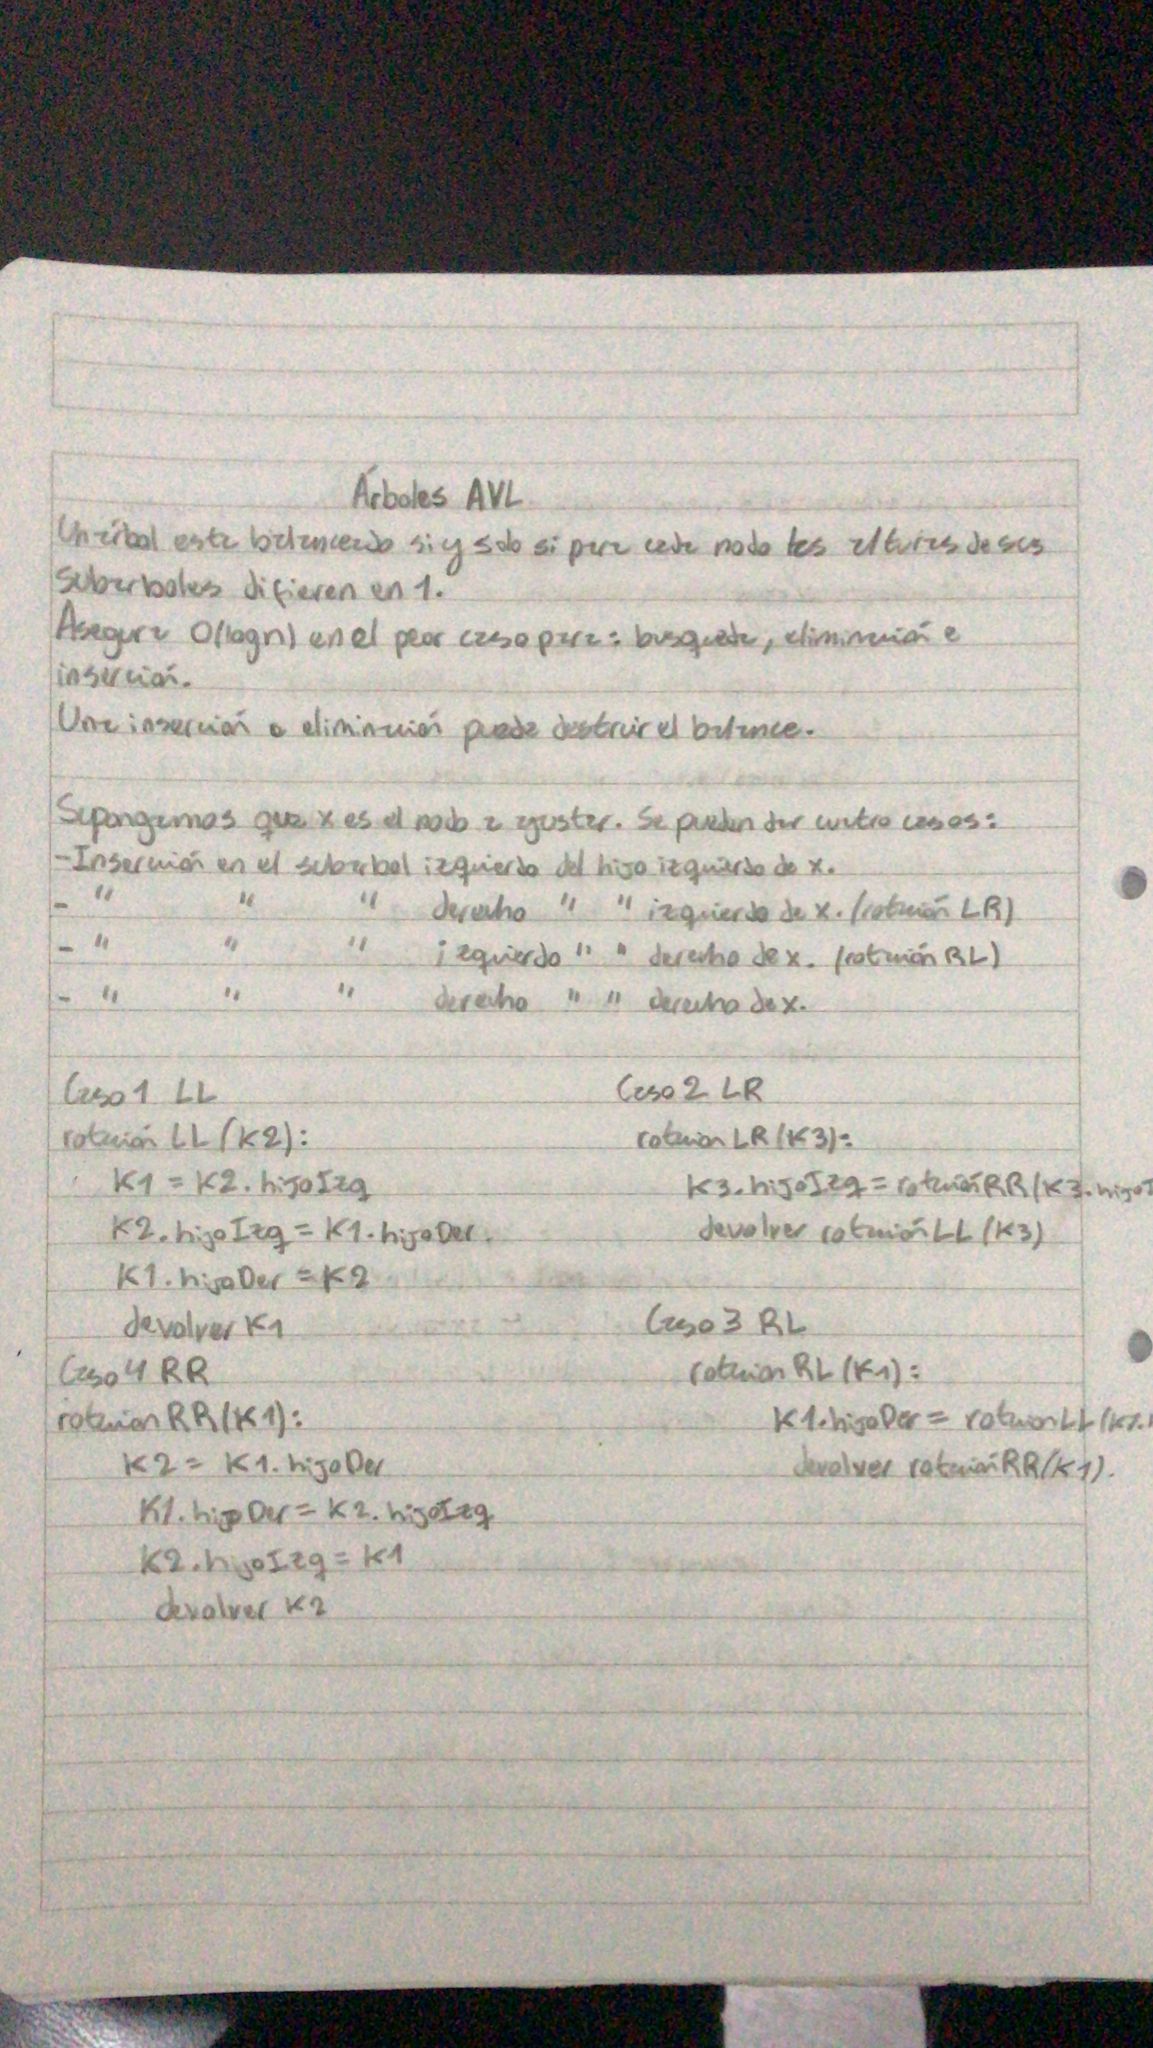 Árboles AVL
Un árbol esta balanceado si y solo si para cada nodo las alturas de sus
subarboles difieren en 1.
Asegura O(log n) en el peor caso para: busqueda, eliminación e
inserción.
Una inserción o eliminación puede destruir el balance.
Supongamos que x es el nodo a ajustar. Se pueden dar cuatro casos:
- Inserción en el subarbol izquierdo del hijo izquierdo de x.
- " " " derecho " " izquierdo de x. (rotación LR)
- " " " izquierdo " " derecho de x. (rotación RL)
- " " " derecho " " derecho de x.
Caso 1 LL
rotación LL (K2):
K1 = K2. hijoIzq
K2. hijoIzq = K1. hijoDer.
K1. hijoDer = K2
devolver K1
Caso 4 RR
rotacion RR (K1):
K2 = K1. hijoDer
K1. hijoDer = K2. hijoIzq
K2. hijoIzq = K1
devolver K2
Caso 2 LR
rotacion LR (K3):
K3. hijoIzq = rotaciónRR (K3. hijoI
devolver rotaciónLL (K3)
Caso 3 RL
rotacion RL (K1):
K1. hijoDer = rotacionLL (K1.
devolver rotaciónRR (K1).